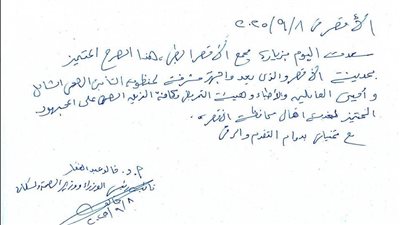 الأقصر في ٢٠٢٥/٩/٨
سعدت اليوم بزيارة مجمع الأقصر الطبي، هذا الصرح المتميز
بمدينة الأقصر والذي يعد واجهة مشرفة لمنظومة التأمين الصحي الشامل
و أحيي العاملين والأطباء وهيئة التمريض وكافة الفريق الصحي على المجهود
المتميز لخدمة أهالي محافظة الأقصر
مع تمنياتي بدوام التقدم والرقي
أ.د. خالد عبدالغفار
نائب رئيس الوزراء ووزير الصحة والسكان
٢٠٢٥/٩/٨